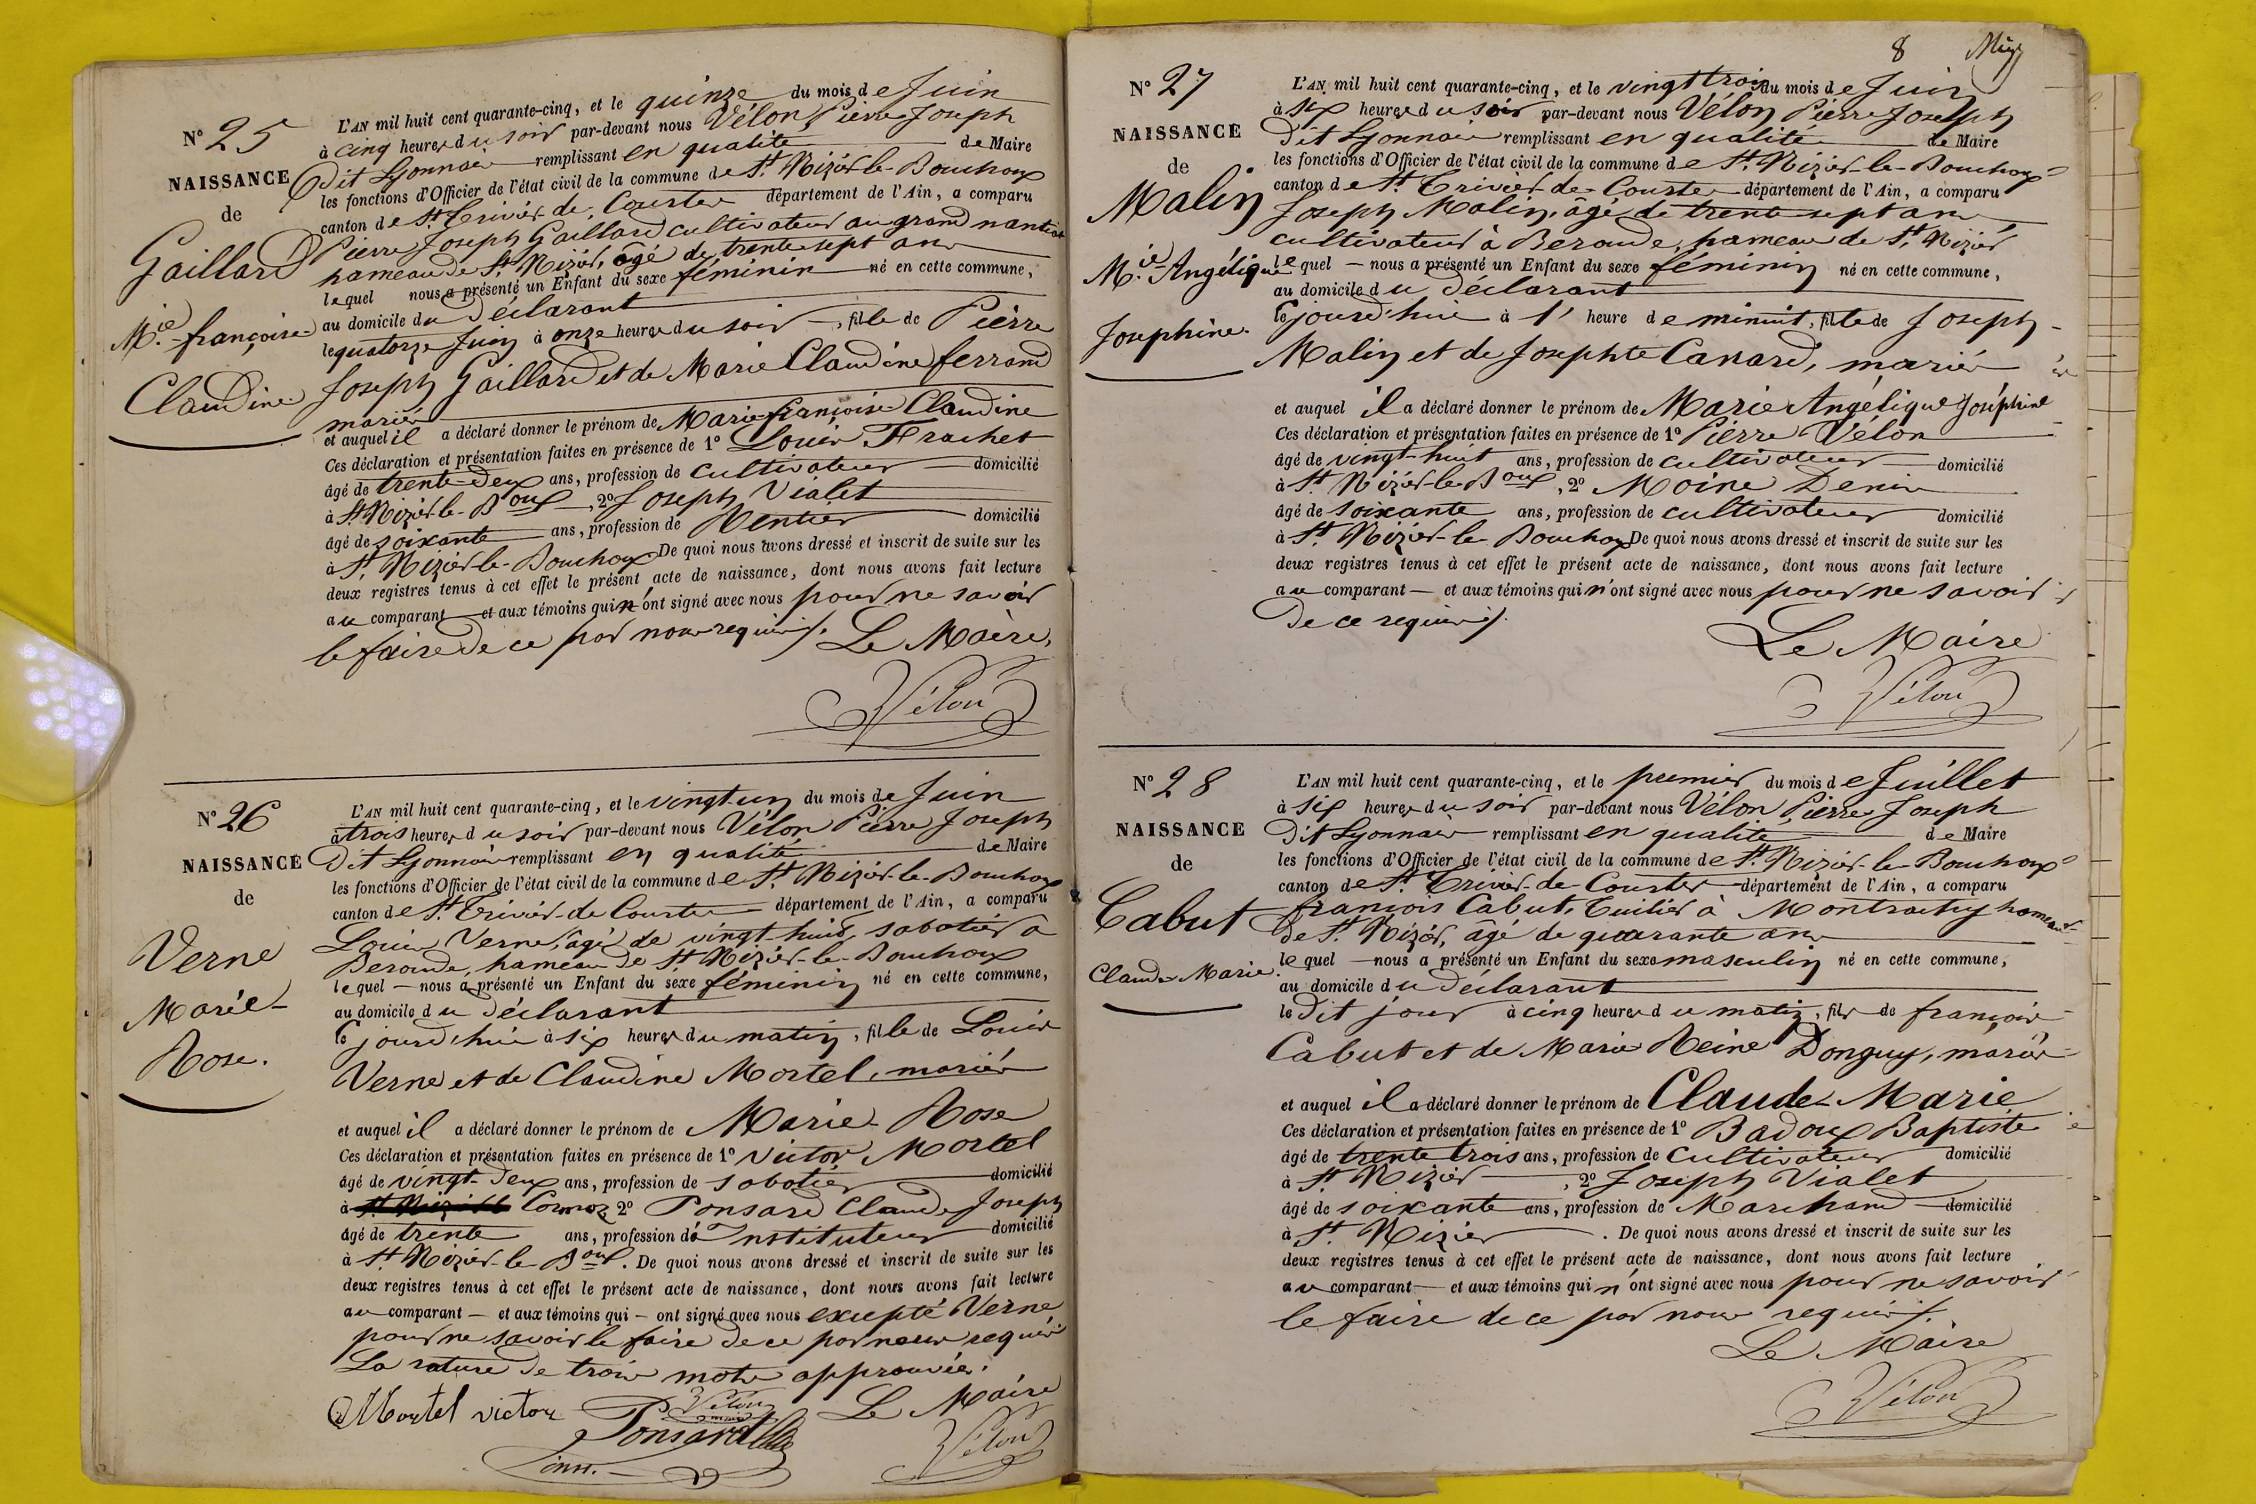 N.º 25
NAISSANCE
de
Gaillard
M.ie françoise
Claudine
L'AN mil huit cent quarante-cinq, et le quinze du mois de Juin
à cinq heures du soir par-devant nous Vélon Pierre Joseph
Dit Lyonnais remplissant en qualité de Maire
les fonctions d'Officier de l'état civil de la commune de St. Nizier-le-Bouchoux
canton de St. Trivier de Courtes département de l'Ain, a comparu
Pierre Joseph Gaillard cultivateur au grand nantiat
hameau de St. Nizier, âgé de trente sept ans
lequel nous a présenté un Enfant du sexe féminin né en cette commune,
au domicile du déclarant
le quatorze Juin à onze heures du soir, fille de Pierre
Joseph Gaillard et de Marie Claudine ferrand
mariés
et auquel il a déclaré donner le prénom de Marie françoise Claudine
Ces déclaration et présentation faites en présence de 1º Louis Frachet
âgé de trente-deux ans, profession de cultivateur domicilié
à St. Nizier-le-Boux, 2º Joseph Vialet
âgé de soixante ans, profession de Rentier domicilié
à St. Nizier-le-Bouchoux De quoi nous avons dressé et inscrit de suite sur les
deux registres tenus à cet effet le présent acte de naissance, dont nous avons fait lecture
au comparant et aux témoins qui n'ont signé avec nous pour ne savoir
le faire de ce par nous requis /. Le Maire,
Vélon
N.º 26
NAISSANCE
de
Verne
Marie-
Rose.
L'AN mil huit cent quarante-cinq, et le vingt-un du mois de Juin
à trois heures du soir par-devant nous Vélon Pierre Joseph
Dit Lyonnais remplissant en qualité de Maire
les fonctions d'Officier de l'état civil de la commune de St. Nizier-le-Bouchoux
canton de St. Trivier-de-Courtes département de l'Ain, a comparu
Louis Verne, âgé de vingt-huit, sabotier à
Beroude, hameau de St. Nizier-le-Bouchoux
lequel — nous a présenté un Enfant du sexe féminin né en cette commune,
au domicile du déclarant
le jourd'hui à six heures du matin, fille de Louis
Verne et de Claudine Mortel, mariés
et auquel il a déclaré donner le prénom de Marie-Rose
Ces déclaration et présentation faites en présence de 1º Victor Mortel
âgé de vingt-deux ans, profession de sabotier domicilié
à St. Nizier Cormoz 2º Ponsard Claude Joseph
âgé de trente ans, profession de Instituteur domicilié
à St. Nizier-le-Boux. De quoi nous avons dressé et inscrit de suite sur les
deux registres tenus à cet effet le présent acte de naissance, dont nous avons fait lecture
au comparant — et aux témoins qui — ont signé avec nous excepté Verne
pour ne savoir le faire de ce par nous requis
La rature de trois mots approuvée.
Mortel victor Vélon Le Maire
Ponsard
Vélon
8
N.º 27
NAISSANCE
de
Malin
M.ie-Angélique
Josephine.
L'AN mil huit cent quarante-cinq, et le vingt trois du mois de Juin
à six heures du soir par-devant nous Vélon Pierre Joseph
Dit Lyonnais remplissant en qualité de Maire
les fonctions d'Officier de l'état civil de la commune de St. Nizier-le-Bouchoux
canton de St. Trivier-de-Courtes département de l'Ain, a comparu
Joseph Malin, âgé de trente sept ans
cultivateur à Beroude, hameau de St. Nizier
lequel — nous a présenté un Enfant du sexe féminin né en cette commune,
au domicile du déclarant
le jourd'hui à 1' heure de minuit, fille de Joseph
Malin et de Josephte Canard, mariés
et auquel il a déclaré donner le prénom de Marie Angélique Joséphine
Ces déclaration et présentation faites en présence de 1º Pierre Vélon
âgé de vingt-huit ans, profession de cultivateur domicilié
à St. Nizier-le-Boux, 2º Moine Denis
âgé de soixante ans, profession de cultivateur domicilié
à St. Nizier-le-Bouchoux De quoi nous avons dressé et inscrit de suite sur les
deux registres tenus à cet effet le présent acte de naissance, dont nous avons fait lecture
au comparant — et aux témoins qui n'ont signé avec nous pour ne savoir
de ce requis /.
Le Maire
Vélon
N.º 28
NAISSANCE
de
Cabut
Claude-Marie.
L'AN mil huit cent quarante-cinq, et le premier du mois de Juillet
à six heures du soir par-devant nous Vélon Pierre Joseph
Dit Lyonnais remplissant en qualité de Maire
les fonctions d'Officier de l'état civil de la commune de St. Nizier-le-Bouchoux
canton de St. Trivier-de-Courtes département de l'Ain, a comparu
françois Cabut, Tuilier à Montrachy hameau
de St. Nizier, âgé de quarante ans
lequel — nous a présenté un Enfant du sexe masculin né en cette commune,
au domicile du déclarant
le dit jour à cinq heures du matin, fils de françois
Cabut et de Marie Reine Donguy, mariés
et auquel il a déclaré donner le prénom de Claude-Marie
Ces déclaration et présentation faites en présence de 1º Badoux Baptiste
âgé de trente trois ans, profession de cultivateur domicilié
à St. Nizier, 2º Joseph Vialet
âgé de soixante ans, profession de Marchand domicilié
à St. Nizier. De quoi nous avons dressé et inscrit de suite sur les
deux registres tenus à cet effet le présent acte de naissance, dont nous avons fait lecture
au comparant — et aux témoins qui n'ont signé avec nous pour ne savoir
le faire de ce par nous requis /.
Le Maire
Vélon